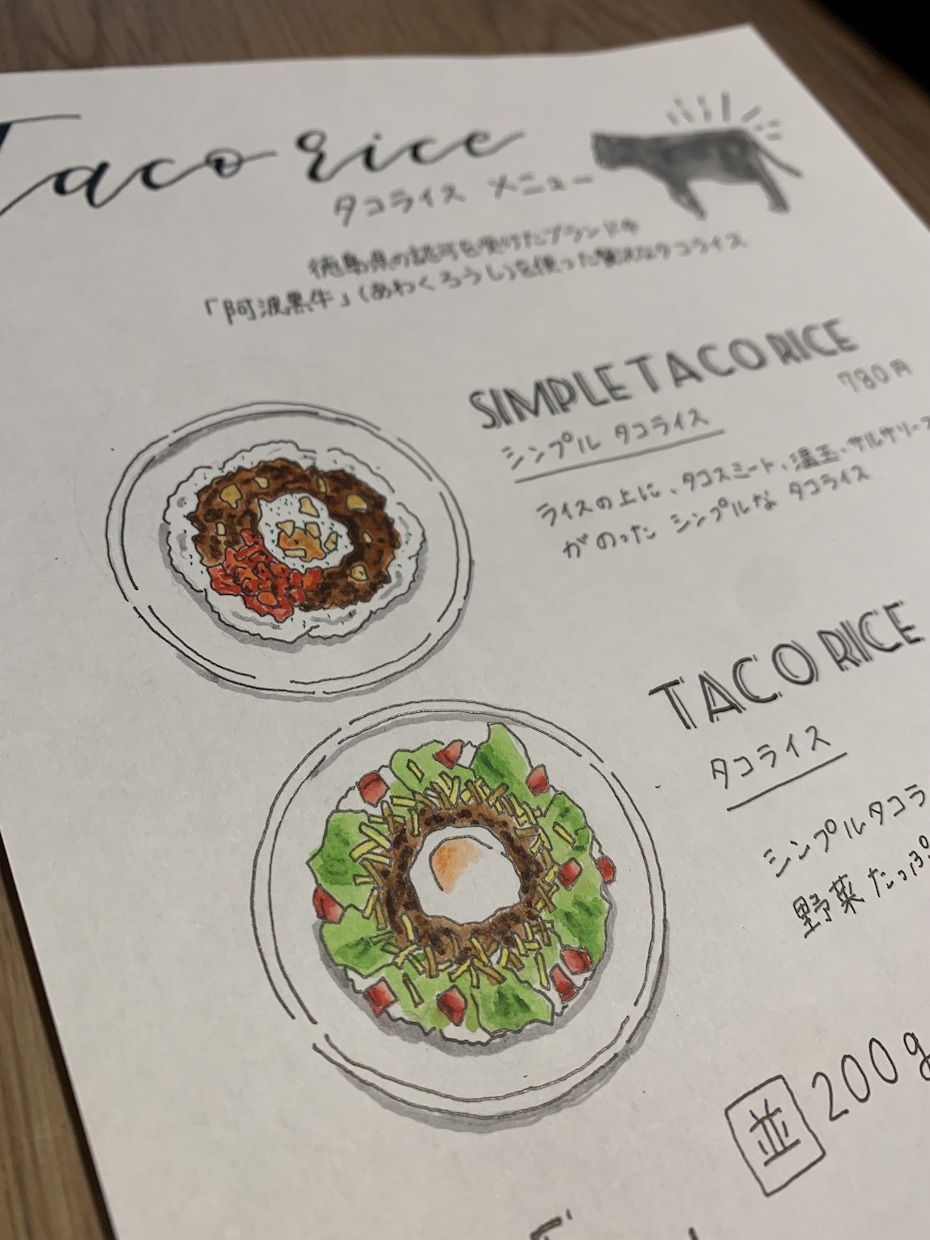 Taco rice
タコライス メニュー
徳島県の認可を受けたブランド牛
「阿波黒牛」(あわくろうし)を使った贅沢なタコライス
SIMPLE TACO RICE
780円
シンプル タコライス
ライスの上に、タコスミート、温玉、サルサソース
がのった シンプルな タコライス
TACO RICE
タコライス
シンプルタコラ
野菜たっぷ
並 200g